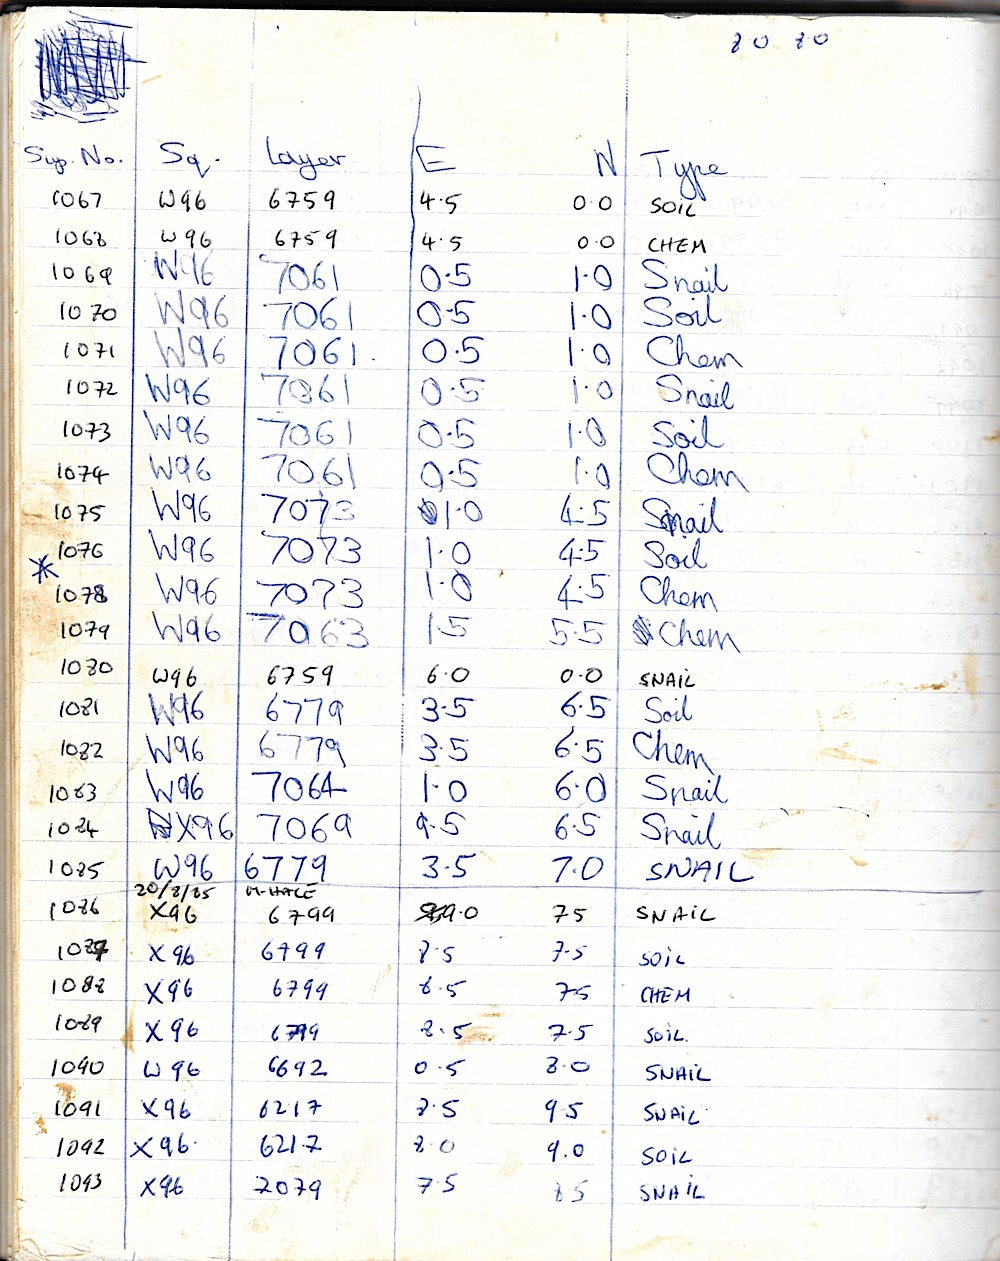 80 80
Sup. No. Sq. Layer E N Type
1067 W96 6759 4.5 0.0 SOIL
1068 W96 6759 4.5 0.0 CHEM
1069 W96 7061 0.5 1.0 Snail
1070 W96 7061 0.5 1.0 Soil
1071 W96 7061. 0.5 1.0 Chem
1072 W96 7061 0.5 1.0 Snail
1073 W96 7061 0.5 1.0 Soil
1074 W96 7061 0.5 1.0 Chem
1075 W96 7073 1.0 4.5 Snail
1076 W96 7073 1.0 4.5 Soil
*
1078 W96 7073 1.0 4.5 Chem
1079 W96 7063 1.5 5.5 Chem
1080 W96 6759 6.0 0.0 SNAIL
1081 W96 6779 3.5 6.5 Soil
1082 W96 6779 3.5 6.5 Chem
1083 W96 7064 1.0 6.0 Snail
1084 X96 7069 9.5 6.5 Snail
1085 W96 6779 3.5 7.0 SNAIL
20/8/85 M-HALE
1086 X96 6799 9.0 7.5 SNAIL
1087 X96 6799 8.5 7.5 SOIL
1088 X96 6799 8.5 7.5 CHEM
1089 X96 6799 8.5 7.5 SOIL.
1090 W96 6692 0.5 8.0 SNAIL
1091 X96 6217 8.5 9.5 SNAIL
1092 X96 6217 8.0 9.0 SOIL
1093 X96 7079 7.5 8.5 SNAIL